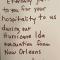 to you for your
hospitality to us
during our
Hurricane Ida
evacuation from
New Orleans